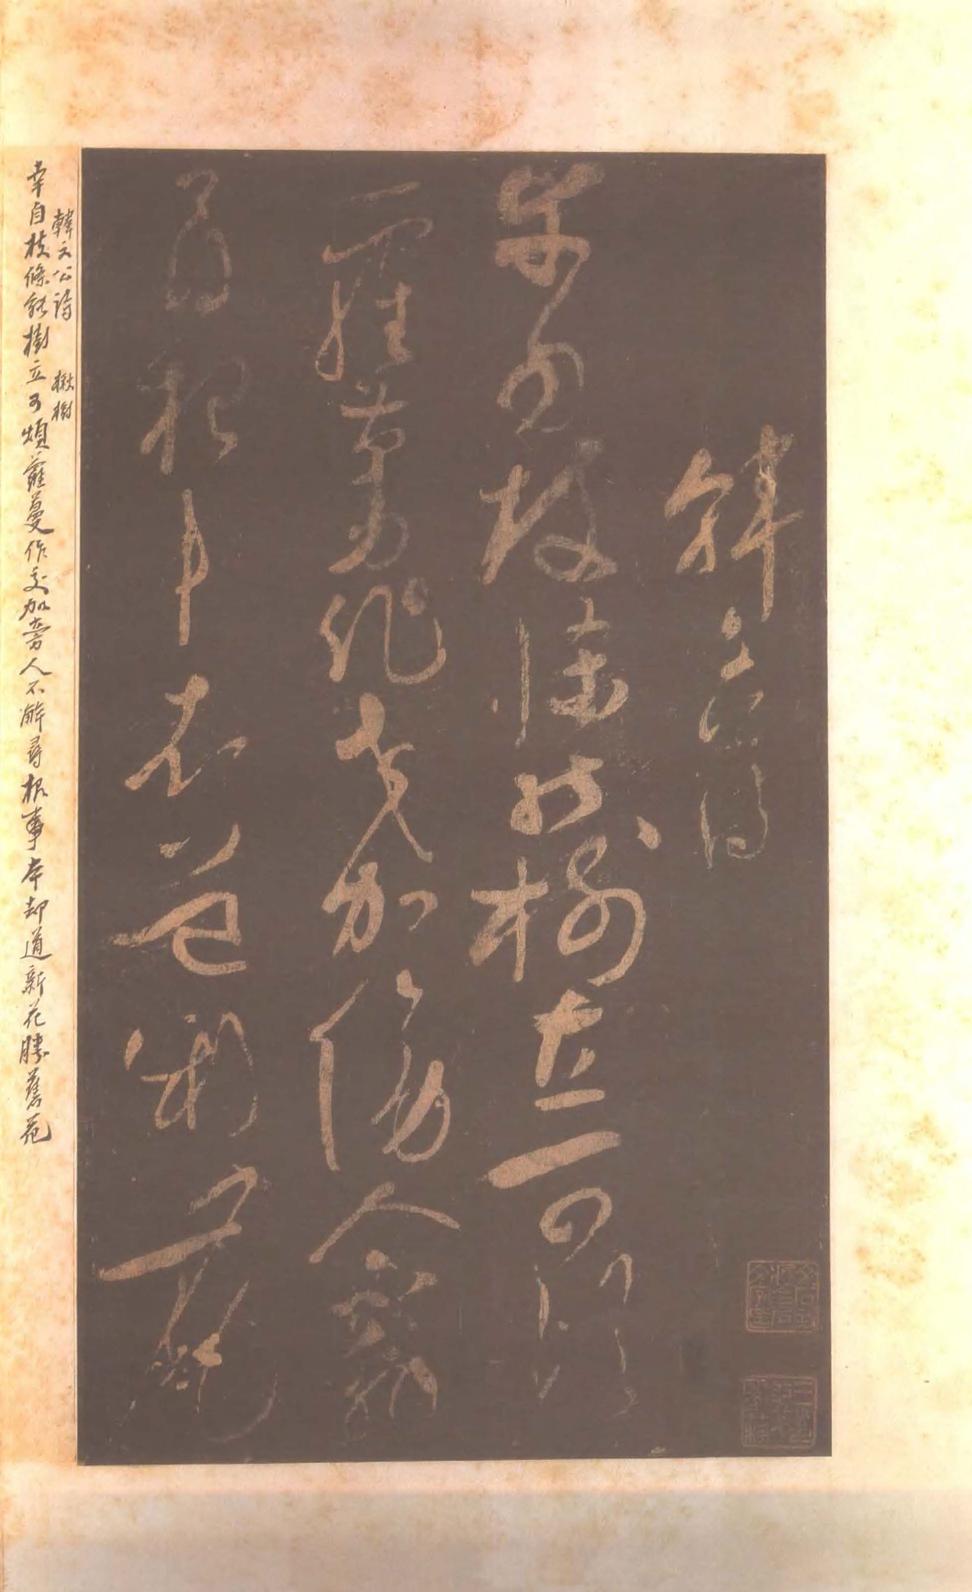 韓文公詩
幸自枝條能樹立可煩
蘿蔓作交加傍人不解
尋根本却道新花
韓文公詩 楸樹
幸自枝條能樹立可煩蘿蔓作交加旁人不解尋根事本却道新花勝舊花